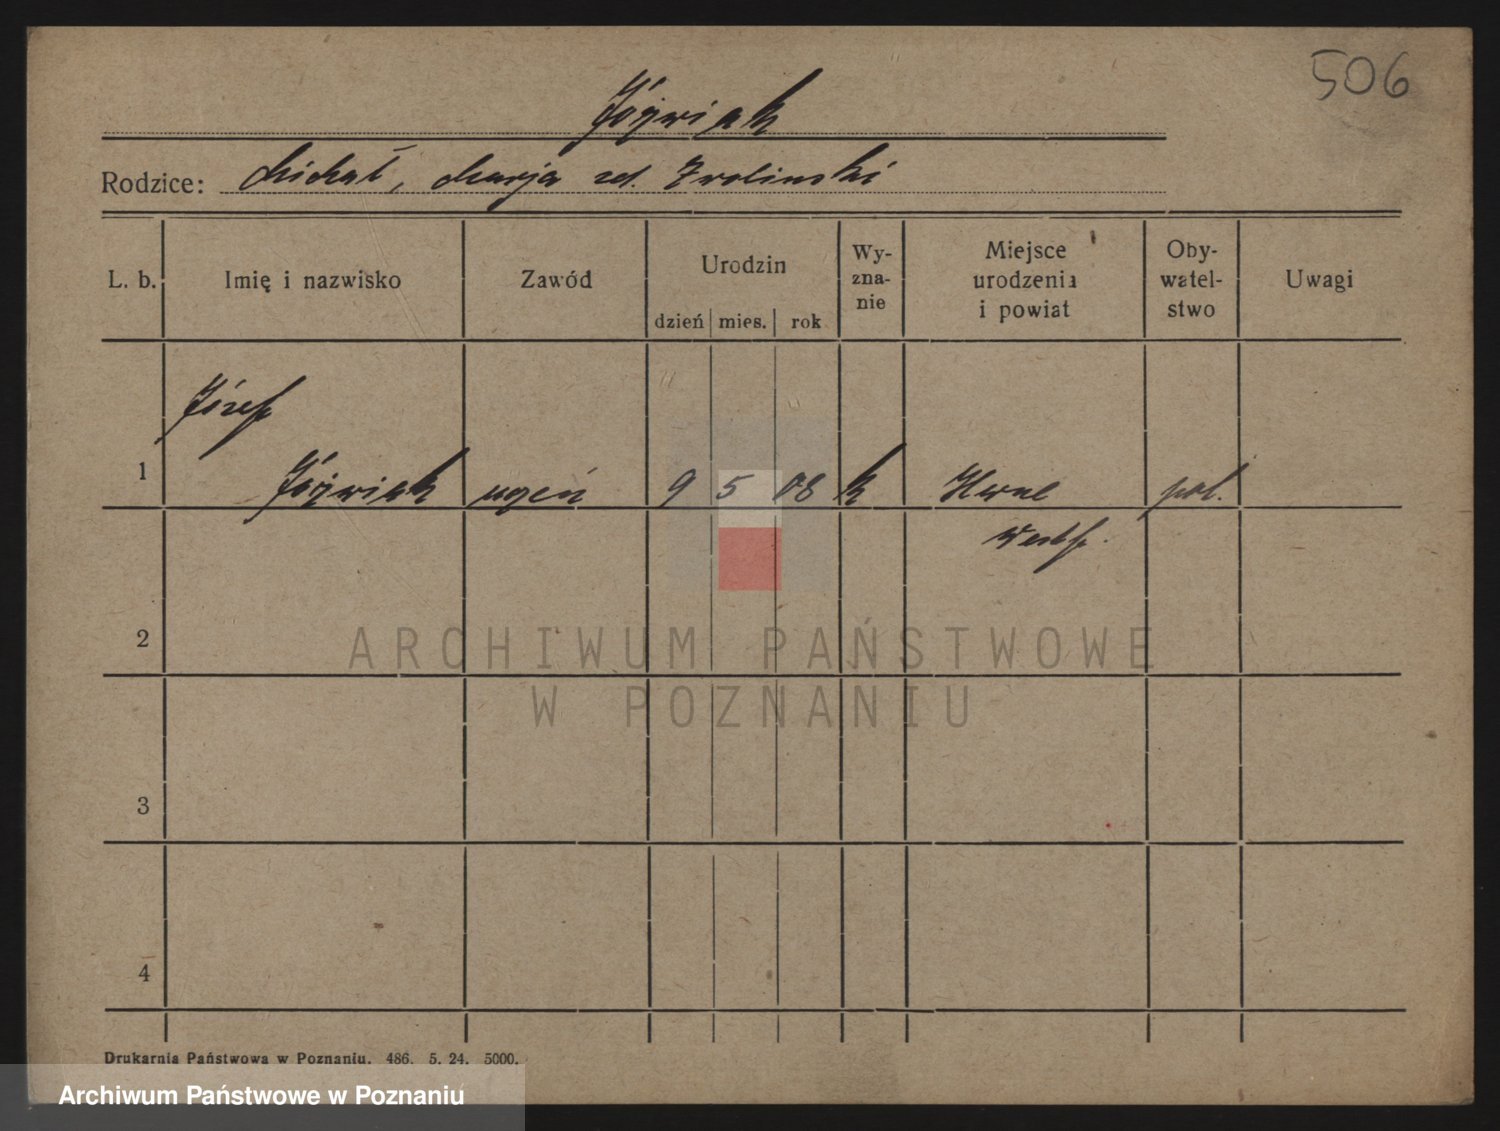 506
Jóźwiak
Rodzice: Michał, Marja zd. Zwolinski
L. b. Imię i nazwisko Zawód Urodzin dzień mies. rok Wy-
zna-
nie Miejsce
urodzenia
i powiat Oby-
watel-
stwo Uwagi
Józef
1 Jóźwiak uczeń 9 5 08 k Herne pol.
Westf.
2
ARCHIWUM PAŃSTWOWE
W POZNANIU
3
4
Drukarnia Państwowa w Poznaniu. 486. 5. 24. 5000.
Archiwum Państwowe w Poznaniu